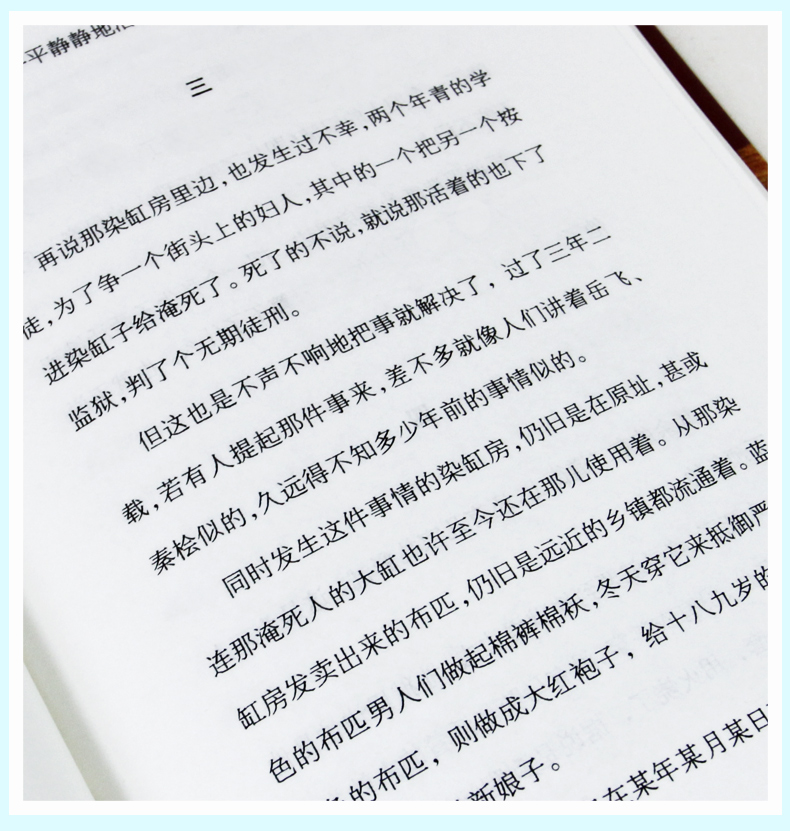 平静静地活
三
再说那染缸房里边,也发生过不幸,两个年青的学
徒,为了争一个街头上的妇人,其中的一个把另一个按
进染缸子给淹死了。死了的不说,就说那活着的也下了
监狱,判了个无期徒刑。
但这也是不声不响地把事就解决了,过了三年二
载,若有人提起那件事来,差不多就像人们讲着岳飞、
秦桧似的,久远得不知多少年前的事情似的。
同时发生这件事情的染缸房,仍旧是在原址,甚或
连那淹死人的大缸也许至今还在那儿使用着。从那染
缸房发卖出来的布匹,仍旧是远近的乡镇都流通着。蓝
色的布匹男人们做起棉裤棉袄,冬天穿它来抵御严
的布匹,则做成大红袍子,给十八九岁的
新娘子。
在某年某月某日